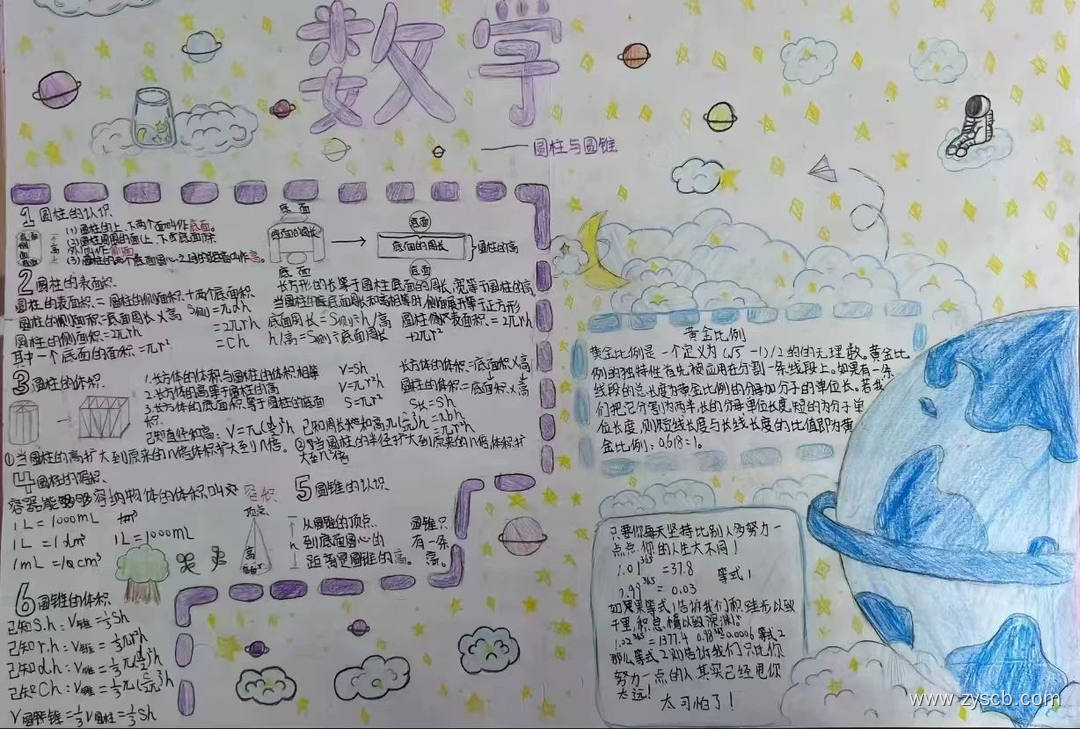 数学
——圆柱与圆锥
1 圆柱的认识
(1) 圆柱的上、下两个面叫作底面。
(2) 圆柱周围的面(上、下底面除
外)叫作侧面。
(3) 圆柱的两个底面圆心之间的距离叫作高。
底面
底面的周长
底面
底面
底面的周长
底面
圆柱的高
2 圆柱的表面积
圆柱的表面积=圆柱的侧面积+两个底面积
圆柱的侧面积=底面周长×高 S侧=πdh
圆柱的侧面积=2πrh =2πrh
其中一个底面的面积=πr² =Ch
长方形的长等于圆柱底面的周长,宽等于圆柱的高
当圆柱的底面周长和高相等时,侧面展开等于正方形
底面周长=S侧÷h/高 圆柱 表面积=2πrh
h/高=S侧÷底面周长 +2πr²
3 圆柱的体积
1.长方体的体积与圆柱的体积相等
2.长方体的高等于圆柱的高
3.长方体的底面积等于圆柱的底面
积
V=Sh
V=πr²h
S=πr²
长方体的体积=底面积×高
圆柱的体积=底面积×高
①当圆柱的高扩大到原来的n倍体积扩大到n倍。
②当圆柱的半径扩大到原来的n倍体积扩
大至n²倍
4 圆柱的容积
容器能够容纳物体的体积叫
1L=1000mL
1L=1dm³ 1L=1000mL
5 圆锥的认识
顶点
高
h
从圆锥的顶点
到底面圆心的
距离是圆锥的高。
圆锥只
有一条
高。
6 圆锥的体积
已知S.h:V锥=⅓Sh
已知r.h:V锥=⅓πr²h
V圆锥=⅓V圆柱=⅓Sh
黄金比例
黄金比例是一个定义为(√5-1)/2的的无理数。黄金比
例的独特性首先被应用在分割一条线段上。如果有一条
线段的总长度为黄金比例的分母加分子的单位长。若我
们把它分割为两半,长的为分母单位长度,短的为分子单
位长度,则短线长度与长线长度的比值即为黄
金比例:0.618=1。
只要你每天坚持比别人多努力一
点点,你的人生大不同!
1.01³⁶⁵=37.8
等式1
=0.03
如果等式1告诉我们积跬步以致
千里,积怠惰以致深渊。
那么等式2则告诉我们只比你
努力一点的人其实已经甩你
太远!
太可怕了!
www.zyscb.com